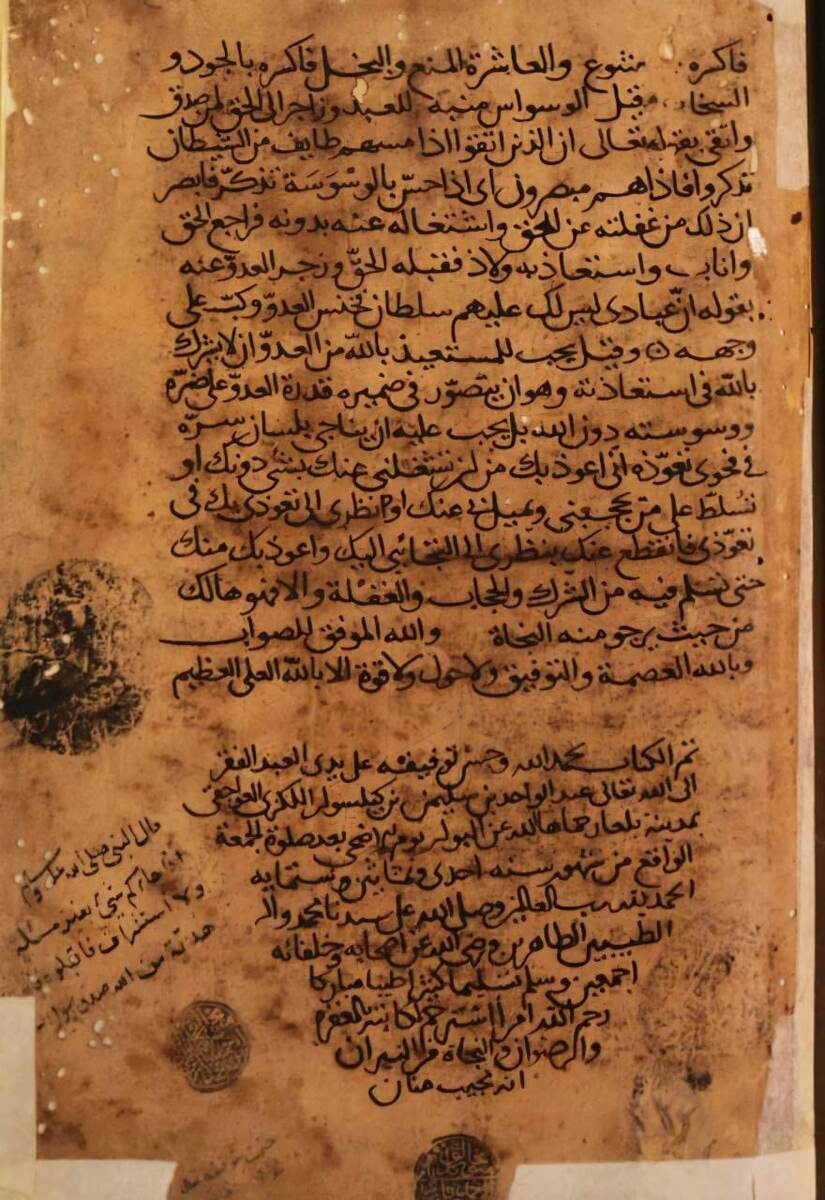 فاكره متنوع والعاشرة المنع والبخل فاكره بالجود و
السخاء وقيل الوسواس منبه للعبد وزاجر الى الحق لمن صدق
واتقى بقوله تعالى ان الذين اتقوا اذا مسهم طايف من الشيطان
تذكروا فاذا هم مبصرون اى اذا حسّ بالوسْوَسَة تذكّر فابصر
ان ذلك من غفلته عن الحق واشتغاله عنه بدونه فراجع الحق
واناب واستعاذ به ولاذ فقبله الحقّ وزجر العدوّ عنه
بقوله انّ عبادى ليس لك عليهم سلطان فخنس العدوّ وكبّ على
وجهه وقيل يجب للمستعيذ بالله من العدوّ ان لا يشرك
بالله فى استعاذته وهو ان يتصوّر فى ضميره قدرة العدوّ على ضرّه
ووسوسته دون الله بل يجب عليه ان يناجى بلسان سرّه
فى فحوى تعوّذه انى اعوذ بك من ان تشغلنى عنك بشئ دونك او
تسلّط على من يحجبنى ويميلنى عنك او نظرى الى تعوذى بك فى
تعوّذى فانقطع عنك بنظرى الى التجائى اليك واعوذ بك منك
حتى تسلم فيه من الشرك والحجاب والغفلة والا فهو هالك
من حيث يرجو منه النجاة والله الموفق للصواب
وبالله العصمة والتوفيق ولا حول ولا قوة الا بالله العلى العظيم
تم الكتاب بحمد الله وحسن توفيقه على يدى العبد الفقير
الى الله تعالى عبد الواحد بن سليمن بن اللكزى
بمدينة بلغار حماها الله عن يوم اضحى بعد صلوة الجمعة
الواقع من شهور سنه احدى وثمانين وستمايه
الحمد لله رب العالمين وصلى الله على سيدنا محمد واله
الطيبين الطاهرين ورضى الله عن اصحابه وخلفائه
اجمعين وسلم تسليما كثيرا طيبا مباركا
رحم الله امرأ استرحم لكاتبه المغفرة
والرضوان والنجاة من النيران
انه مجيب حنان
قال النبى صلى الله عليه وسلم
اذا جاءكم شئ بغير مسئلة
ولا استشراف فاقبلوه
هديّة من الله